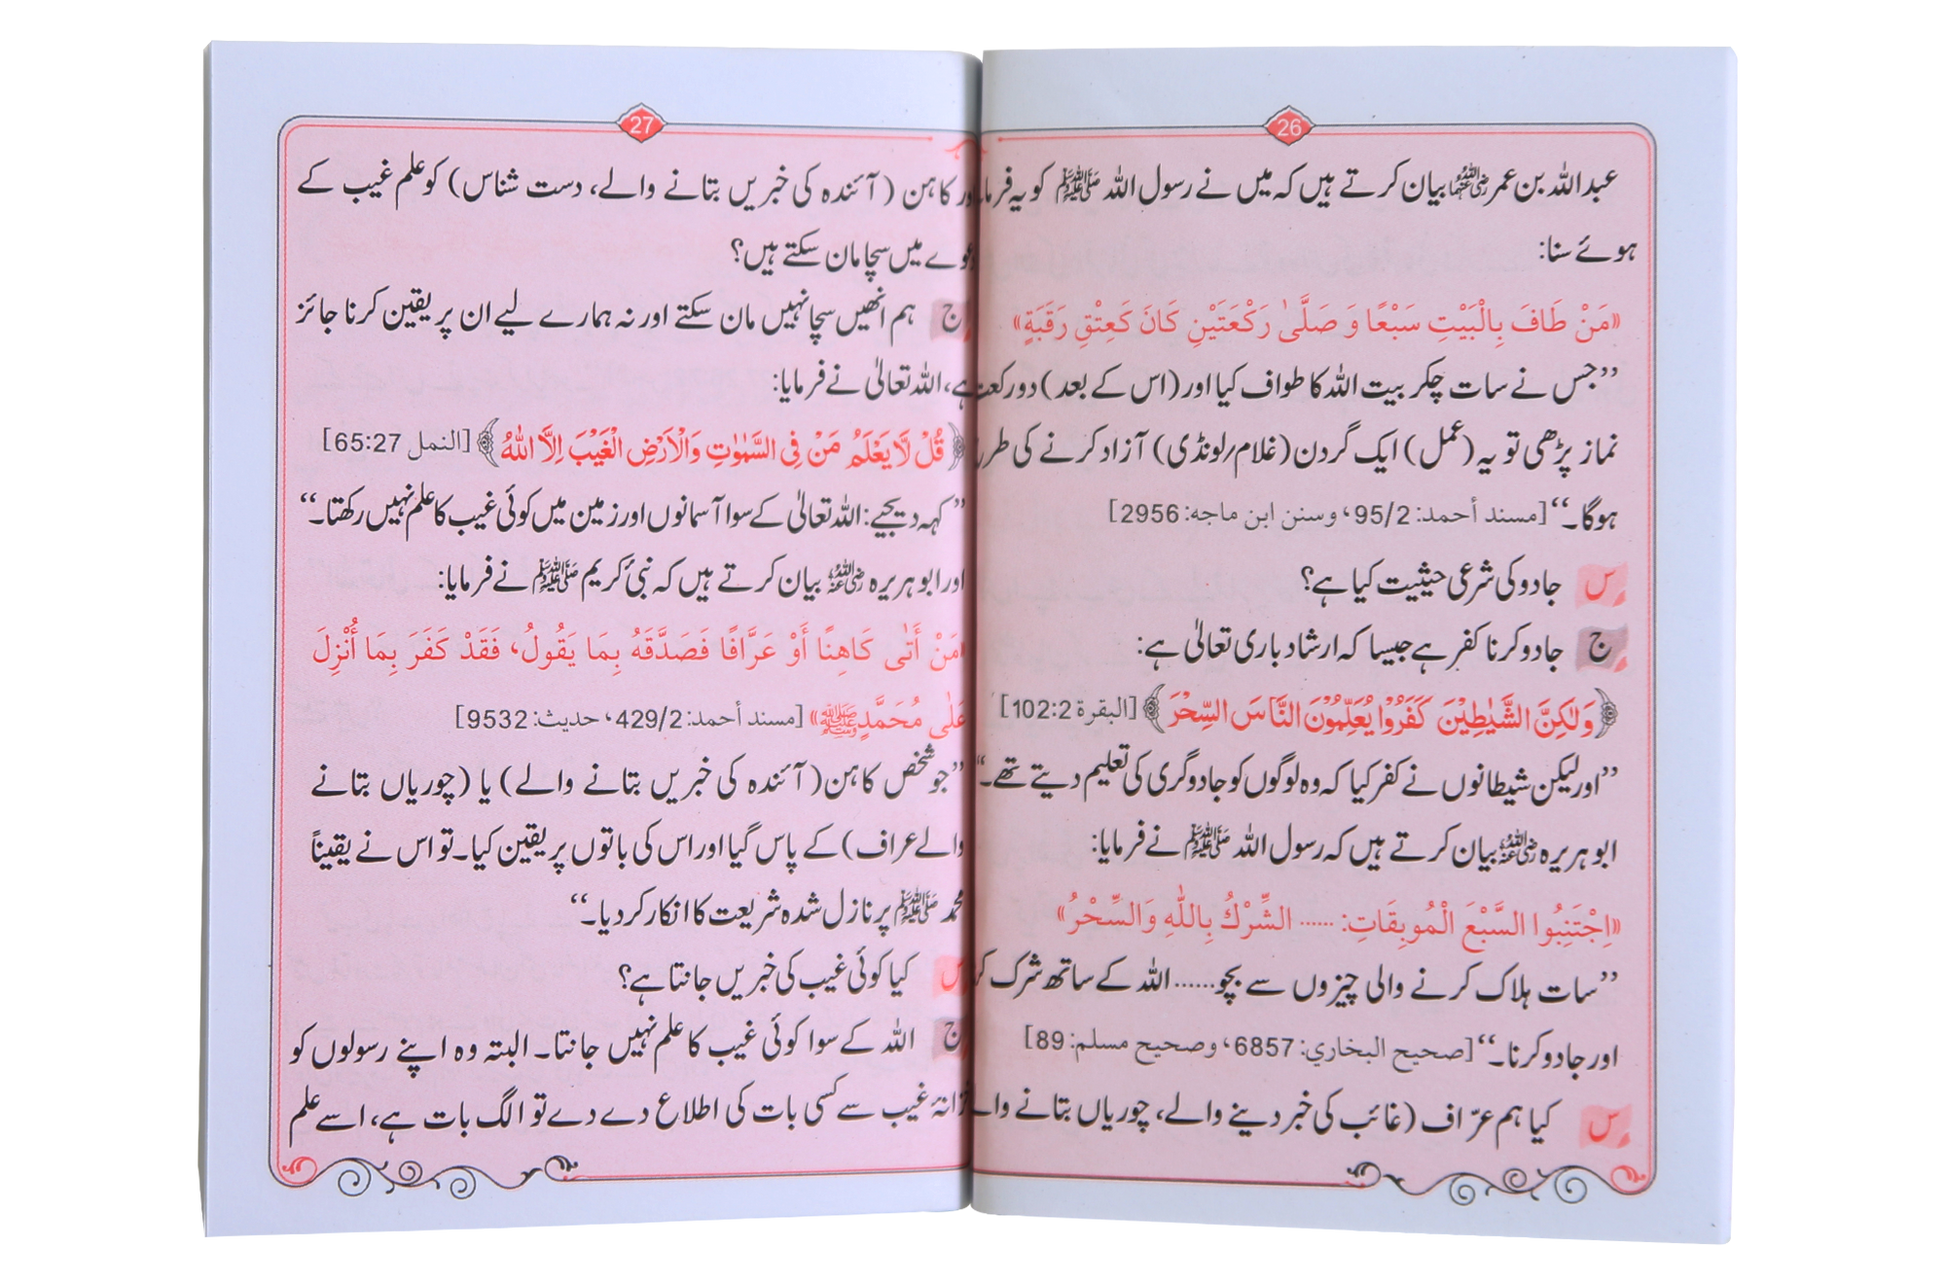 26
عبداللہ بن عمر رضی اللہ عنہما بیان کرتے ہیں کہ میں نے رسول اللہ ﷺ کو یہ فرما
ہوئے سنا:
«مَنْ طَافَ بِالْبَيْتِ سَبْعًا وَ صَلَّىٰ رَكْعَتَيْنِ كَانَ كَعِتْقِ رَقَبَةٍ»
’’جس نے سات چکر بیت اللہ کا طواف کیا اور (اس کے بعد) دو رکعت
نماز پڑھی تو یہ (عمل) ایک گردن (غلام/لونڈی) آزاد کرنے کی طرح
ہوگا۔‘‘ [مسند أحمد: 95/2، وسنن ابن ماجه: 2956]
س جادو کی شرعی حیثیت کیا ہے؟
ج جادو کرنا کفر ہے جیسا کہ ارشاد باری تعالیٰ ہے:
﴿وَلٰكِنَّ الشَّيٰطِيْنَ كَفَرُوْا يُعَلِّمُوْنَ النَّاسَ السِّحْرَ﴾ [البقرة 102:2]
’’اور لیکن شیطانوں نے کفر کیا کہ وہ لوگوں کو جادوگری کی تعلیم دیتے تھے۔‘‘
ابو ہریرہ رضی اللہ عنہ بیان کرتے ہیں کہ رسول اللہ ﷺ نے فرمایا:
«اِجْتَنِبُوا السَّبْعَ الْمُوبِقَاتِ: ...... الشِّرْكُ بِاللّٰهِ وَالسِّحْرُ»
’’سات ہلاک کرنے والی چیزوں سے بچو...... اللہ کے ساتھ شرک کر
اور جادو کرنا۔‘‘ [صحيح البخاري: 6857، وصحيح مسلم: 89]
س کیا ہم عرّاف (غائب کی خبر دینے والے، چوریاں بتانے والے
27
اور کاہن (آئندہ کی خبریں بتانے والے، دست شناس) کو علم غیب کے
دعوے میں سچا مان سکتے ہیں؟
ج ہم انھیں سچا نہیں مان سکتے اور نہ ہمارے لیے ان پر یقین کرنا جائز
ہے، اللہ تعالیٰ نے فرمایا:
﴿قُلْ لَّا يَعْلَمُ مَنْ فِي السَّمٰوٰتِ وَالْاَرْضِ الْغَيْبَ اِلَّا اللّٰهُ﴾ [النمل 65:27]
’’کہہ دیجیے: اللہ تعالیٰ کے سوا آسمانوں اور زمین میں کوئی غیب کا علم نہیں رکھتا۔‘‘
اور ابو ہریرہ رضی اللہ عنہ بیان کرتے ہیں کہ نبیٔ کریم ﷺ نے فرمایا:
«مَنْ أَتٰى كَاهِنًا أَوْ عَرَّافًا فَصَدَّقَهُ بِمَا يَقُولُ، فَقَدْ كَفَرَ بِمَا أُنْزِلَ
عَلٰى مُحَمَّدٍ ﷺ» [مسند أحمد: 429/2، حديث: 9532]
’’جو شخص کاہن (آئندہ کی خبریں بتانے والے) یا (چوریاں بتانے
والے عراف) کے پاس گیا اور اس کی باتوں پر یقین کیا۔ تو اس نے یقیناً
محمد ﷺ پر نازل شدہ شریعت کا انکار کر دیا۔‘‘
س کیا کوئی غیب کی خبریں جانتا ہے؟
ج اللہ کے سوا کوئی غیب کا علم نہیں جانتا۔ البتہ وہ اپنے رسولوں کو
خزانۂ غیب سے کسی بات کی اطلاع دے دے تو الگ بات ہے، اسے علم